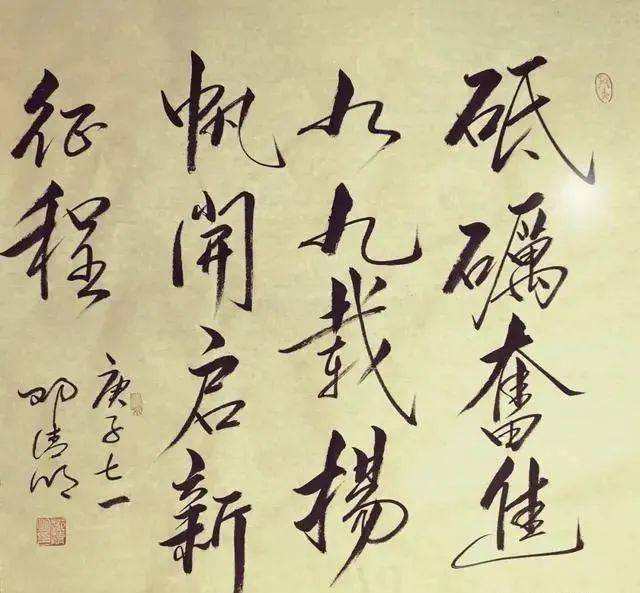 砥礪奮進
九九載揚
帆開启新
征程
庚子七一